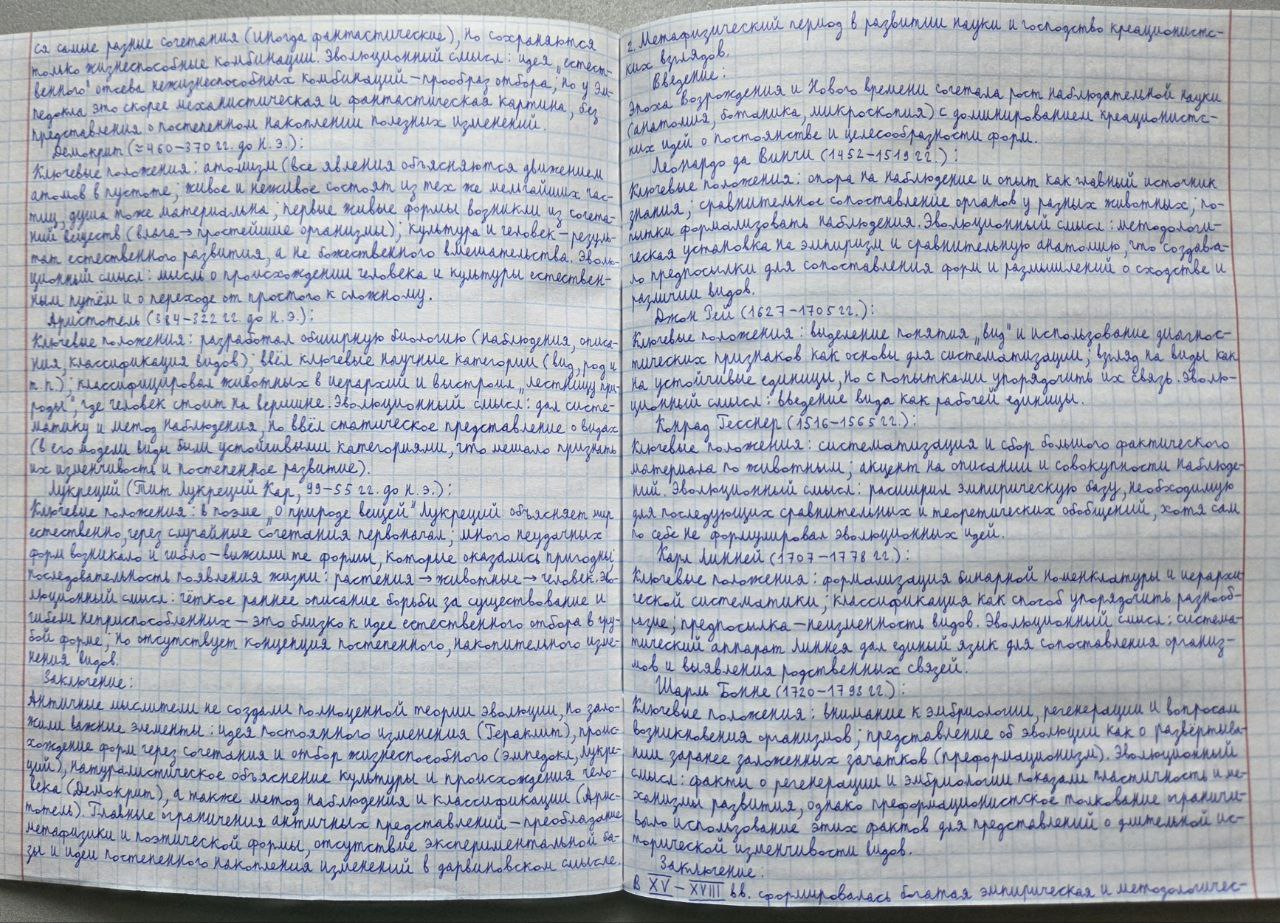 ся самые разные сочетания (иногда фантастические), но сохраняются
только жизнеспособные комбинации. Эволюционный смысл: идея „естест-
венного" отсева нежизнеспособных комбинаций – прообраз отбора, но у Эм-
педокла это скорее механистическая и фантастическая картина, без
представления о постепенном накоплении полезных изменений.
Демокрит (≈460–370 гг. до н. э.):
Ключевые положения: атомизм (все явления объясняются движением
атомов в пустоте; живое и неживое состоят из тех же мельчайших час-
тиц; душа тоже материальна; первые живые формы возникли из сочета-
ний веществ (влага → простейшие организмы); культура и человек – резуль-
тат естественного развития, а не божественного вмешательства. Эволю-
ционный смысл: мысль о происхождении человека и культуры естествен-
ным путём и о переходе от простого к сложному.
Аристотель (384–322 гг. до н. э.):
Ключевые положения: разработал обширную биологию (наблюдения, описа-
ния, классификация видов); ввёл ключевые научные категории (вид, род и
т. п.); классифицировал животных в иерархии и выстроил „лестницу при-
роды", где человек стоит на вершине. Эволюционный смысл: дал систе-
матику и метод наблюдения, но ввёл статическое представление о видах
(в его модели виды были устойчивыми категориями, что мешало признать
их изменчивость и постепенное развитие).
Лукреций (Тит Лукреций Кар, 99–55 гг. до н. э.):
Ключевые положения: в поэме „О природе вещей" Лукреций объясняет мир
естественно, через случайные сочетания первоначал; много неудачных
форм возникало и гибло – выжили те формы, которые оказались пригодны;
последовательность появления жизни: растения → животные → человек. Эво-
люционный смысл: чёткое раннее описание борьбы за существование и
гибели неприспособленных – это близко к идее естественного отбора в гру-
бой форме, но отсутствует концепция постепенного, накопительного изме-
нения видов.
Заключение:
Античные мыслители не создали полноценной теории эволюции, но зало-
жили важные элементы: идея постоянного изменения (Гераклит), проис-
хождение форм через сочетания и отбор жизнеспособного (Эмпедокл, Лукре-
ций), натуралистическое объяснение культуры и происхождения чело-
века (Демокрит), а также метод наблюдения и классификации (Арис-
тотель). Главные ограничения античных представлений – преобладание
метафизики и поэтической формы, отсутствие экспериментальной ба-
зы и идеи постепенного накопления изменений в дарвиновском смысле.
2. Метафизический период в развитии науки и господство креационистс-
ких взглядов.
Введение:
Эпоха Возрождения и Нового времени сочетала рост наблюдательной науки
(анатомия, ботаника, микроскопия) с доминированием креационистс-
ких идей о постоянстве и целесообразности форм.
Леонардо да Винчи (1452–1519 гг.):
Ключевые положения: опора на наблюдение и опыт как главный источник
знания; сравнительное сопоставление органов у разных животных; по-
пытки формализовать наблюдения. Эволюционный смысл: методологи-
ческая установка на эмпиризм и сравнительную анатомию, что создава-
ло предпосылки для сопоставления форм и размышлений о сходстве и
различии видов.
Джон Рей (1627–1705 гг.):
Ключевые положения: выделение понятия „вид" и использование диагнос-
тических признаков как основы для систематизации; взгляд на виды как
на устойчивые единицы, но с попытками упорядочить их связь. Эволю-
ционный смысл: введение вида как рабочей единицы.
Конрад Гесснер (1516–1565 гг.):
Ключевые положения: систематизация и сбор большого фактического
материала по животным; акцент на описании и совокупности наблюде-
ний. Эволюционный смысл: расширил эмпирическую базу, необходимую
для последующих сравнительных и теоретических обобщений, хотя сам
по себе не формулировал эволюционных идей.
Карл Линней (1707–1778 гг.):
Ключевые положения: формализация бинарной номенклатуры и иерархи-
ческой систематики; классификация как способ упорядочить разнооб-
разие; предпосылка – неизменность видов. Эволюционный смысл: система-
тический аппарат Линнея дал единый язык для сопоставления организ-
мов и выявления родственных связей.
Шарль Бонне (1720–1793 гг.):
Ключевые положения: внимание к эмбриологии, регенерации и вопросам
возникновения организмов; представление об эволюции как о развёртыва-
нии заранее заложенных зачатков (преформационизм). Эволюционный
смысл: факты о регенерации и эмбриологии показали пластичность и ме-
ханизмы развития, однако преформационистское толкование ограничи-
вало использование этих фактов для представлений о длительной ис-
торической изменчивости видов.
Заключение:
В XV – XVIII вв. сформировалась богатая эмпирическая и методологичес-